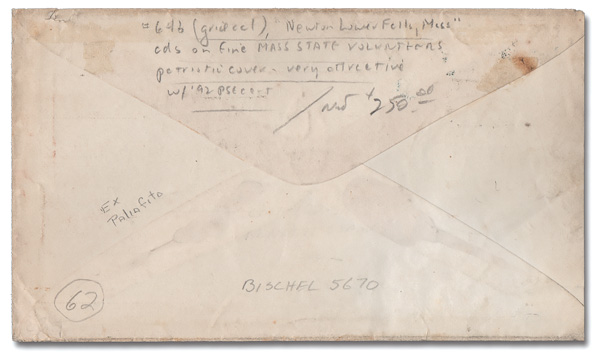 #64b (grid ccl), "Newton Lower Falls, Mass"
cds on fine MASS STATE VOLUNTEERS
patriotic cover - very attractive
w/ '92 PSE cert
/ net $250.00
Ex
Paliafito
BISCHEL 5670
62